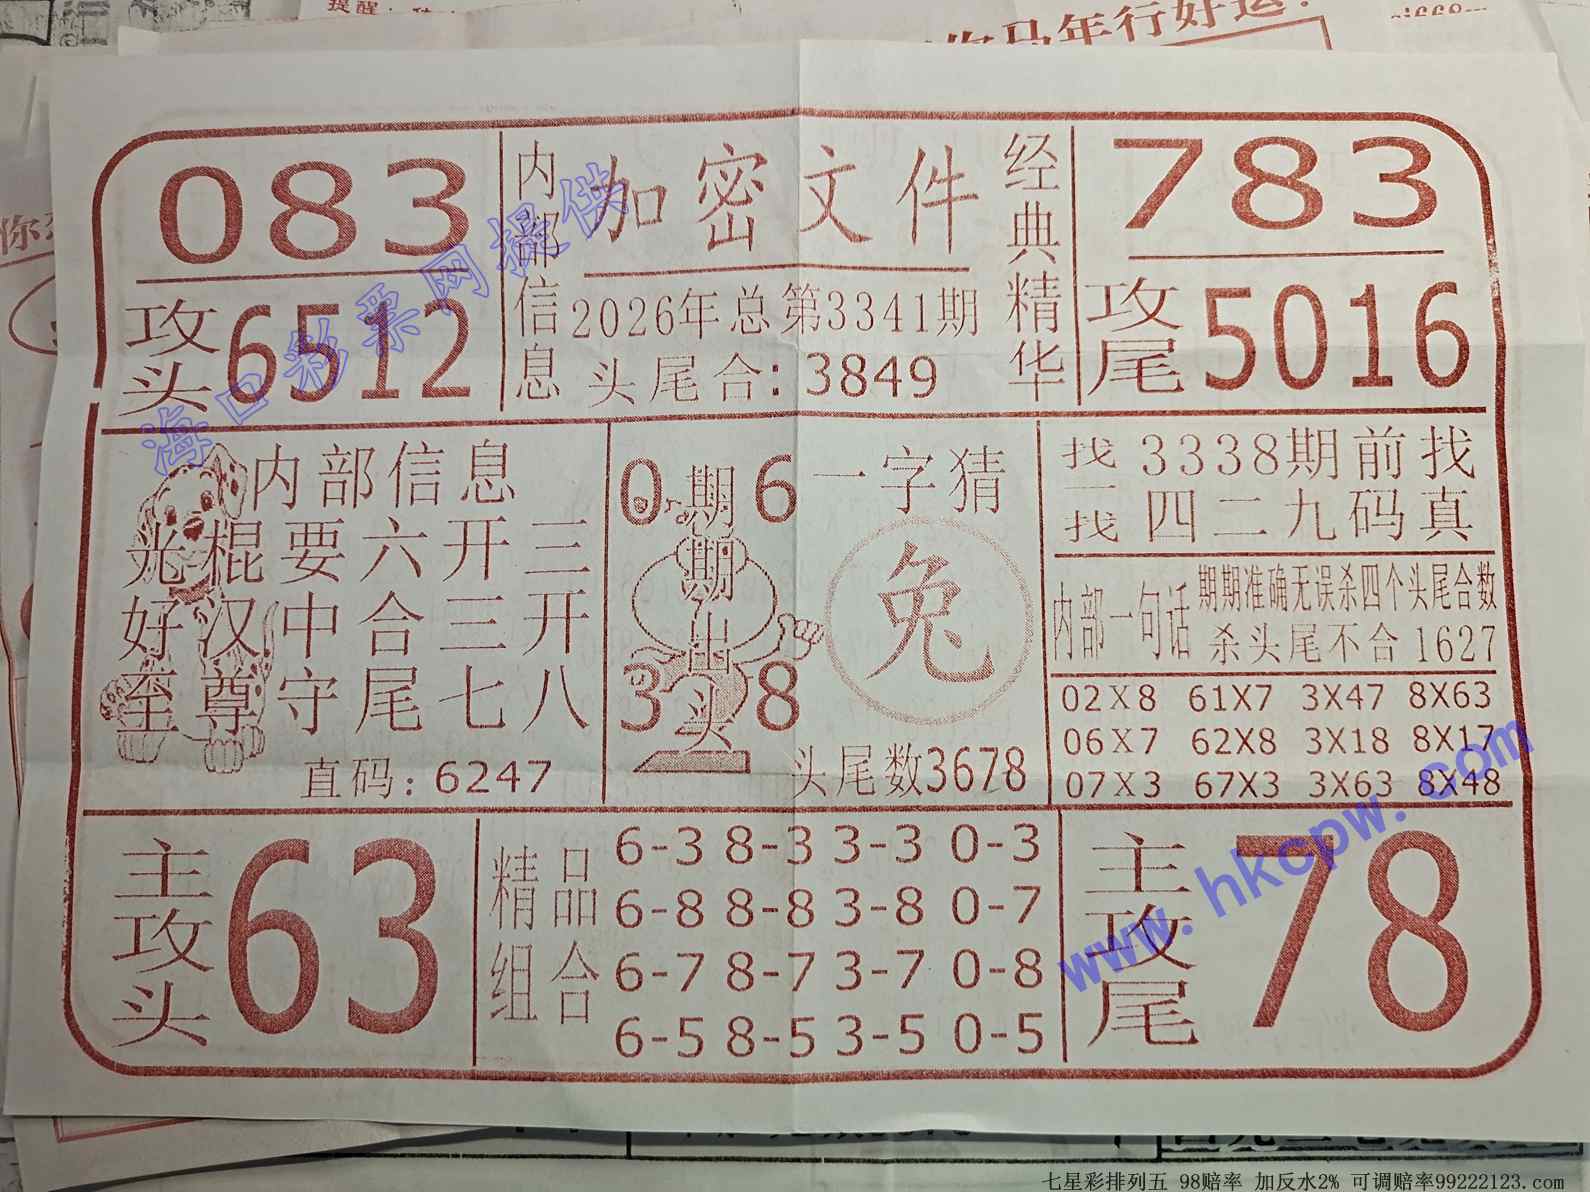 提醒
马年行好运!
083
攻头 6512
内部信息
加密文件
2026年总第3341期
头尾合:3849
经典精华
783
攻尾 5016
内部信息
光棍要六开三
好汉中合三开
至尊守尾七八
直码:6247
0 6
3 8
期期出头
一字猜
兔
头尾数3678
找一找
3338期前找
四二九码真
内部一句话
期期准确无误杀四个头尾合数
杀头尾不合 1627
02X8 61X7 3X47 8X63
06X7 62X8 3X18 8X17
07X3 67X3 3X63 8X48
主攻头 63
精品组合
6-3 8-3 3-3 0-3
6-8 8-8 3-8 0-7
6-7 8-7 3-7 0-8
6-5 8-5 3-5 0-5
主攻尾 78
海口彩票网提供
www.hkcpw.com
七星彩排列五 98赔率 加反水2% 可调赔率99222123.com